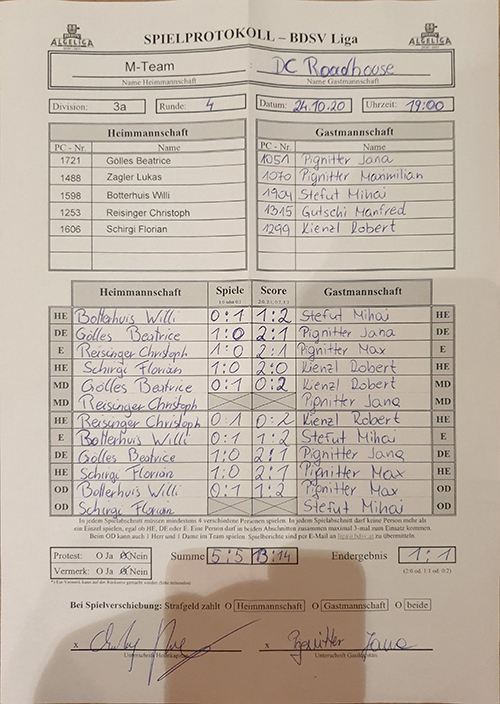 ALGELIGA SPIELPROTOKOLL – BDSV Liga ALGELIGA
M-Team DC Roadhouse
Name Heimmannschaft Name Gastmannschaft
Division: 3a Runde: 4 Datum: 24.10.20 Uhrzeit: 19:00
Heimmannschaft Gastmannschaft
PC - Nr. Name PC - Nr. Name
1721 Gölles Beatrice 1051 Pignitter Jana
1488 Zagler Lukas 1070 Pignitter Maximilian
1598 Botterhuis Willi 1904 Stefut Mihai
1253 Reisinger Christoph 1315 Gutschi Manfred
1606 Schirgi Florian 1299 Kienzl Robert
Heimmannschaft Spiele Score Gastmannschaft
HE Botterhuis Willi 0:1 1:2 Stefut Mihai HE
DE Gölles Beatrice 1:0 2:1 Pignitter Jana DE
E Reisinger Christoph 1:0 2:1 Pignitter Max E
HE Schirgi Florian 1:0 2:0 Kienzl Robert HE
MD Gölles Beatrice 0:1 0:2 Kienzl Robert MD
MD Reisinger Christoph Pignitter Jana MD
HE Reisinger Christoph 0:1 0:2 Kienzl Robert HE
E Botterhuis Willi 0:1 1:2 Stefut Mihai E
DE Gölles Beatrice 1:0 2:1 Pignitter Jana DE
HE Schirgi Florian 1:0 2:1 Pignitter Max HE
OD Botterhuis Willi 0:1 1:2 Pignitter Max. OD
OD Schirgi Florian Stefut Mihai OD
In jedem Spielabschnitt müssen mindestens 4 verschiedene Personen spielen. In jedem Spielabschnitt darf keine Person mehr als
ein Einzel spielen, egal ob HE, DE oder E. Eine Person darf in beiden Abschnitten zusammen maximal 3-mal zum Einsatz kommen.
Beim OD kann auch 1 Herr und 1 Dame im Team spielen. Spielberichte sind per E-Mail an liga@bdsv.at zu übermitteln.
Protest: O Ja O Nein Summe 5:5 13:14 Endergebnis 1:1
Vermerk: O Ja O Nein (2:0 od. 1:1 od. 0:2)
Bei Spielverschiebung: Strafgeld zahlt O Heimmannschaft O Gastmannschaft O beide
x x Pignitter Jana
Unterschrift Heimkapitän Unterschrift Gastkapitän